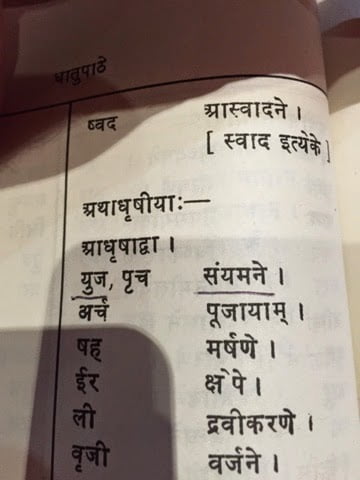 धातुपाठे
ष्वद आस्वादने ।
[ स्वाद इत्येके ]
अथाधृषीयाः—
आधृषाद्वा ।
युज, पृच संयमने ।
अर्च पूजायाम् ।
षह मर्षणे ।
ईर क्षेपे ।
ली द्रवीकरणे ।
वृजी वर्जने ।